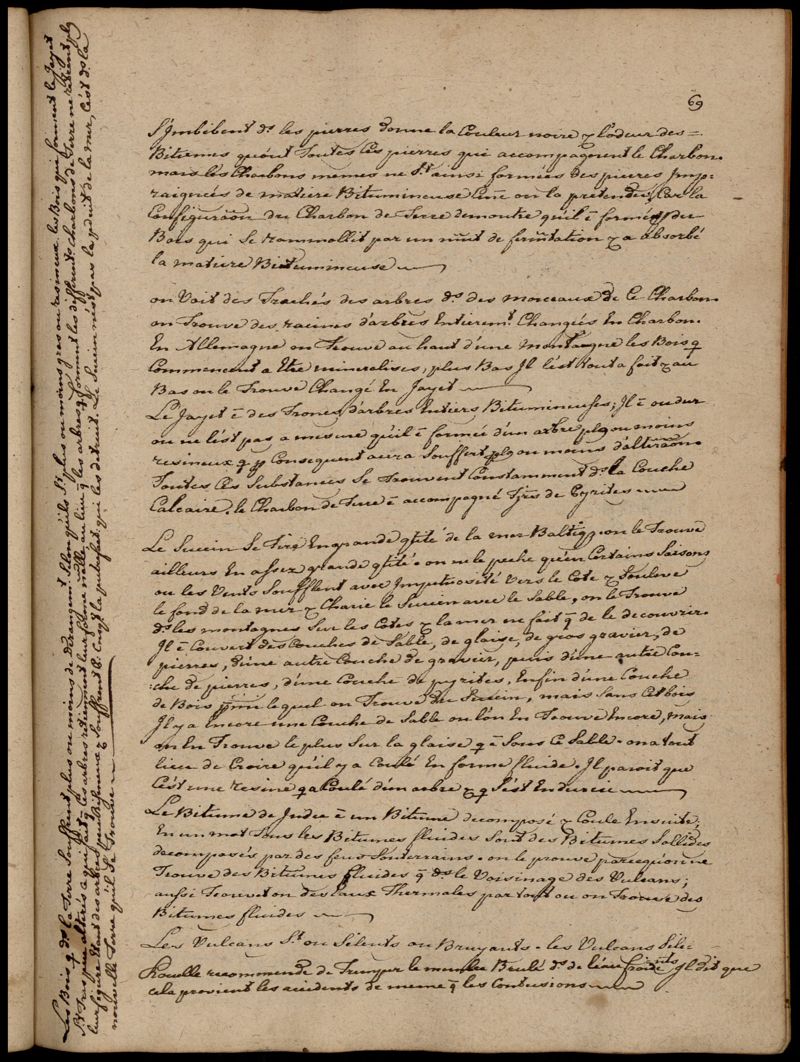 69
S'Imbibent ds les pierres donne la Couleur noire & l'odeur des=
Bitumes qu'ont Toutes Les pierres qui accompagnent le Charbon
mais les Charbons memes ne st ainsi formées des pierres Imp-
raignées de matiere Bitumineuse Coe on la pretendu, Car la
Configuraon du Charbon de Terre demontre qu'il ē formé du
Bois qui se rammollit par un mt de fermtation & a absorbé
la matiere Bictumineuse
on Voit des Trachés des arbres ds des morceaux de Ce Charbon
on Trouve des racines d'arbres Entieremt Changées En Charbon.
En Allemagne on Trouve au haut d'une montagne les Bois q̄
Commencent a Etre mineralisés, plus Bas Il l'est tout a fait & au
Bas on le Trouve Changé En Jayet
Le Jayet ē des Troncs d'arbres Entiers Bitumineuses; Il ē ou dur
ou ne l'est pas a mesure qu'il ē formée d'un arbre plg ou moins
resineux q̄ p Consequent aura Souffert plg ou moins d'alteraon
Toutes Ces Substances Se Trouvent Constamment ds la Couche
Calcaire. le Charbon de Terre ē accompagné Tjrs de Pyrites
Le Succin Se Tire En grande qtité de la mer Baltiq, on le Trouve
ailleurs En assez grande qtité. on ne le peche qu'en Certains Saisons
ou les Vents Soufflent avec Impetuosité vers le Cote & Souleve
le fond de la mer & Charie le Succin avec le Sable, on le Trouve
ds les montagnes Sur les Cotes & la mer ne fait q̄ de le decouvrir.
Il ē Couvert des Couches de Sable, de glaise, de gros gravier, de
pierres, d'une autre Couche de gravier, puis d'une autre Cou-
:che de pierres, d'une Couche de pyrites, Enfin d'une Couche
de Bois lequel on Trouve du Succin, mais Sans Ces bois
Il y a encore une Couche de Sable ou l'on En Trouve Encore, mais
on En Trouve le plus Sur la glaise q̄ ē Sous Ce Sable. on a tout
lieu de Croire qu'il y a Coulé En forme fluide. Il paroit que
C'est une resine q̄ a Coulé d'un arbre & q̄ s'est Endurcie
Le Bitume de Judée ē un Bitume decomposé & Coule Ensuite;
En un mot Tous les Bitumes fluides Sont des Bitumes Sollides
decomposés par des feux Souterrains. on le prouve parcequ'on ne
Trouve des Bitumes fluides q̄ ds le Voisinage des Vulcans;
aussi Trouve t'on des Eaux Thermales par tout ou on Trouve des
Bitumes fluides
Les Vulcans St ou Silents ou Bruyants. les Vulcans Sile-
Rouelle recommende de Tremper le membre Brulé ds de l'eau froide, Il dit que
cela previent les accidents de meme q̄ les Contusions
Les Bois q̄ ds la Terre Souffrent plus ou moins de derangemt Selon qu'ils St plus ou moins gros ou resineux. les Bois qui forment le Jayet
St Tres peu alterés a qui fait q̄ Ces arbres retiennent leur forme au lieu q̄ les arbres q̄ forment les differents charbons de Terre ne retiennent plg
leur figure Etant des arbres peu Bitumeux & Souffrent la putrefact. qui les detruit. Le Succin n'est pas le produit de la mer, C'est ds la
nouvelle Terre qu'il Se Trouve